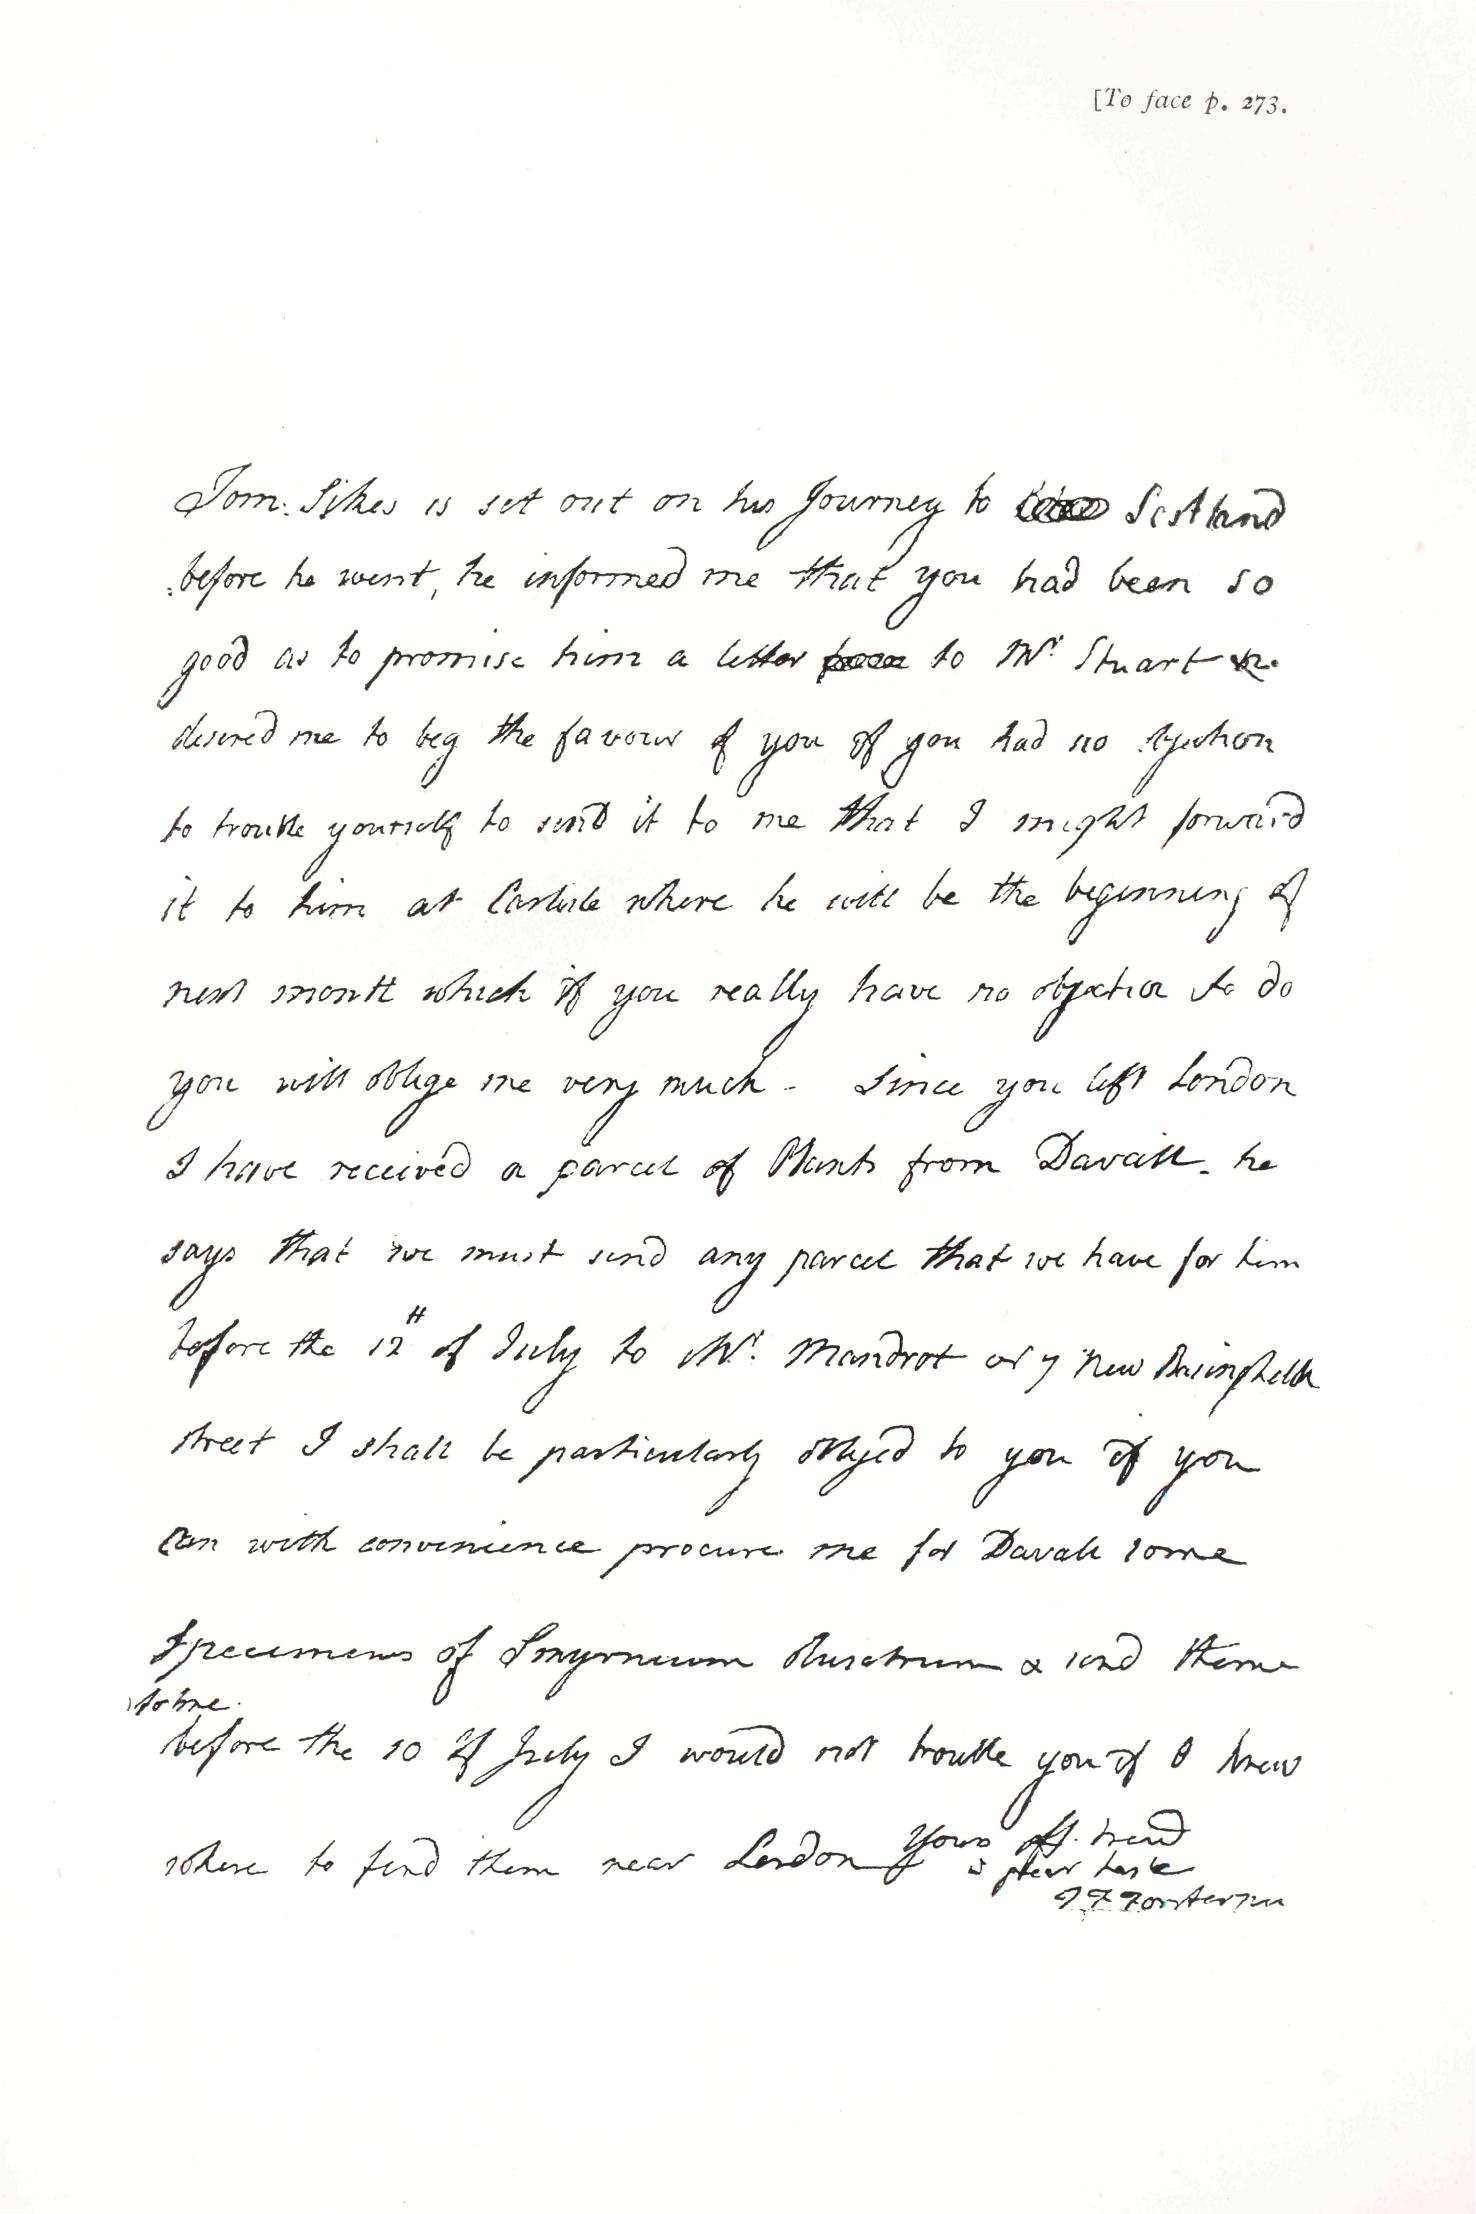 [To face p. 273.
Tom. Sikes is set out on his Journey to Scotland
before he went, he informed me that you had been so
good as to promise him a letter to Mr. Stuart &
desired me to beg the favour of you if you had no objection
to trouble yourself to send it to me that I might forward
it to him at Carlisle where he will be the beginning of
next month which if you really have no objection to do
you will oblige me very much - Since you left London
I have received a parcel of Plants from Davall. he
says that we must send any parcel that we have for him
before the 12th of July to Mr. Mandrot at 7 New Basinghall
street I shall be particularly obliged to you if you
Can with convenience procure me for Davall some
Specimens of Smyrnium Olusatrum & send them
to me
before the 10 of July I would not trouble you if I knew
where to find them near London
Yours aff.
in great haste
T F Forster jun